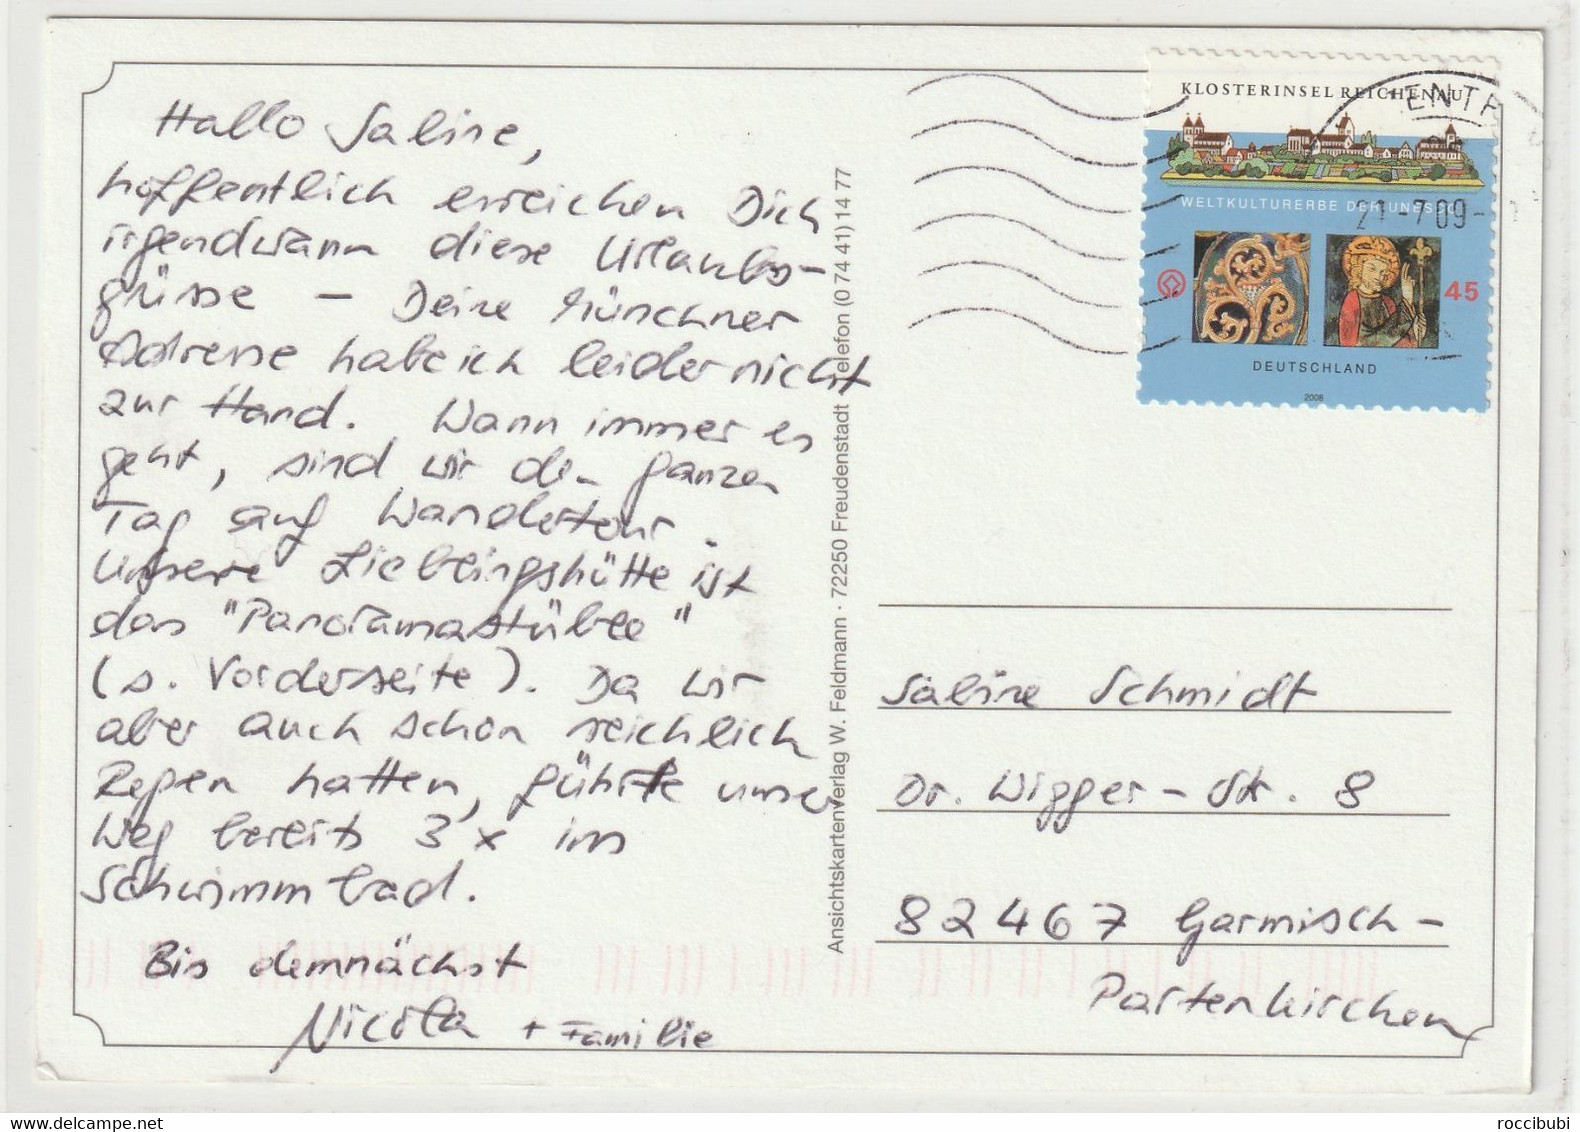 Hallo Sabine,
hoffentlich erreichen Dich
irgendwann diese Urlaubs-
grüsse – Deine Münchner
Adresse habe ich leider nicht
zur Hand. Wann immer es
geht, sind wir den ganzen
Tag auf Wandertour.
Unsere Lieblingshütte ist
das "Panoramastüble"
(s. Vorderseite). Da wir
aber auch schon reichlich
Regen hatten, führte unser
Weg bereits 3 x im
Schwimmbad.
Bis demnächst
Nicola + Familie
Ansichtskartenverlag W. Feldmann · 72250 Freudenstadt · Telefon (0 74 41) 14 77
KLOSTERINSEL REICHENAU
WELTKULTURERBE DER UNESCO
45
DEUTSCHLAND
2008
ENTR
21.-7.09
Sabine Schmidt
Dr. Wigger-Str. 8
82467 Garmisch-
Partenkirchen
roccibubi